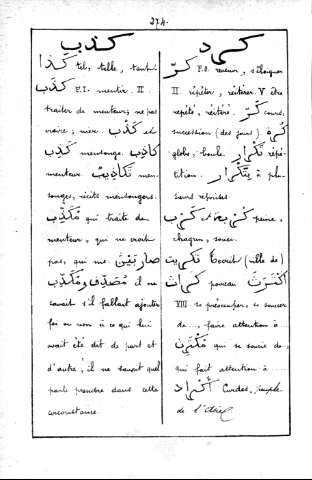 274.
كذب
كذا tel, telle, tant
كذب F.I. mentir. II
traiter de menteur; ne pas
croire; nier. كذب et
كذب mensonge. كاذب
menteur. تكاذيب men-
songes, récits mensongers.
مكذّب qui traite de
menteur, qui ne croit
pas, qui nie. صار بين
مصدّق ومكذّب il ne
savait s'il fallait ajouter
foi ou non à ce qui lui
avait été dit de part et
d'autre, il ne savait quel
parti prendre dans cette
circonstance.
كرّ F.O. revenir, s'éloigner
II répéter, réitérer. V être
répété, réitéré. كرّ cours,
succession (des jours) كرة
globe, boule. تكرار répé-
tition. بتكرار à plu-
sieurs reprises
كرب et peine,
chagrin, souci.
تكريت Tecrit (ville de)
كراث poireau اكترث
VIII se préoccuper, se soucier
de.., faire attention à...
مكترث qui se soucie de..,
qui fait attention à.....
اكراد Curdes, peuple
de l'Asie